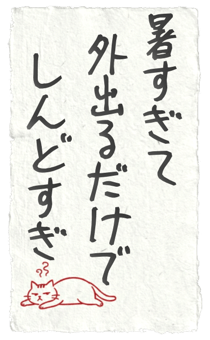 暑すぎて
外出るだけで
しんどすぎ
??